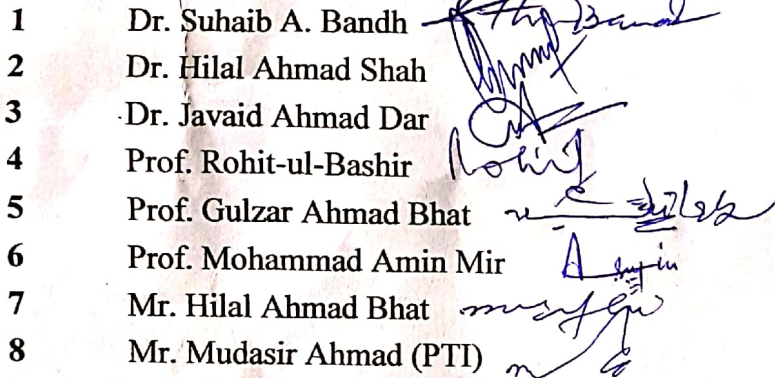 1 Dr. Suhaib A. Bandh
2 Dr. Hilal Ahmad Shah
3 Dr. Javaid Ahmad Dar
4 Prof. Rohit-ul-Bashir Rohit
5 Prof. Gulzar Ahmad Bhat
6 Prof. Mohammad Amin Mir Amin
7 Mr. Hilal Ahmad Bhat
8 Mr. Mudasir Ahmad (PTI)